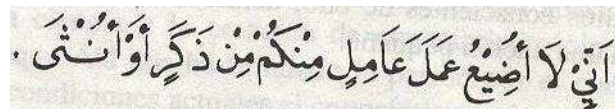 اَنِّيْ لَا أُضِيْعُ عَمَلَ عَامِلٍ مِنْكُمْ مِنْ ذَكَرٍ أَوْ أُنْثَى .